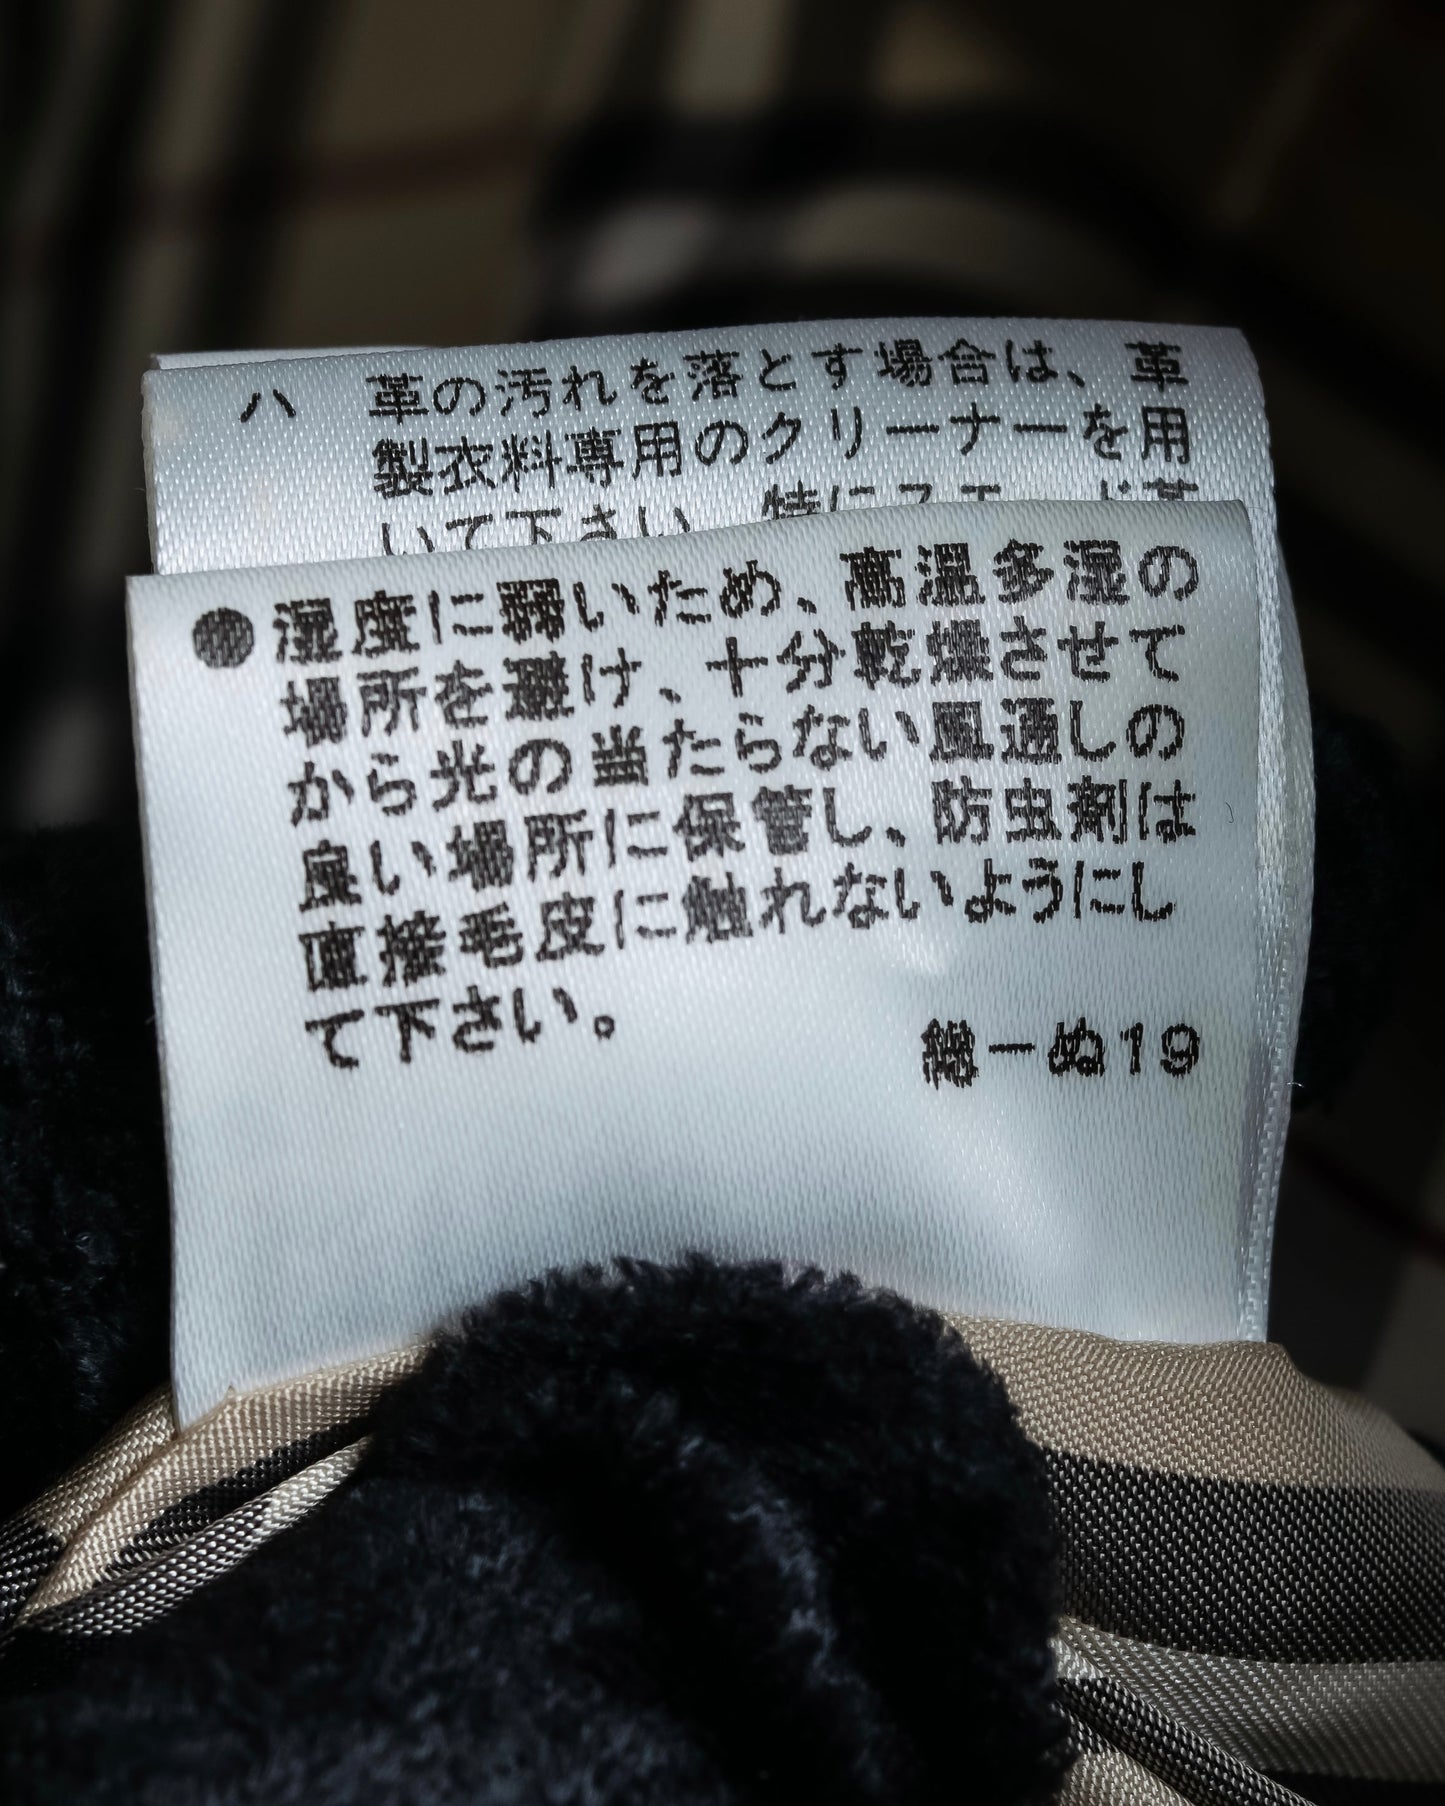 ハ 革の汚れを落とす場合は、革
製衣料専用のクリーナーを用
いて下さい。特にスエード革
●湿度に弱いため、高温多湿の
場所を避け、十分乾燥させて
から光の当たらない風通しの
良い場所に保管し、防虫剤は
直接毛皮に触れないようにし
て下さい。
ーぬ19